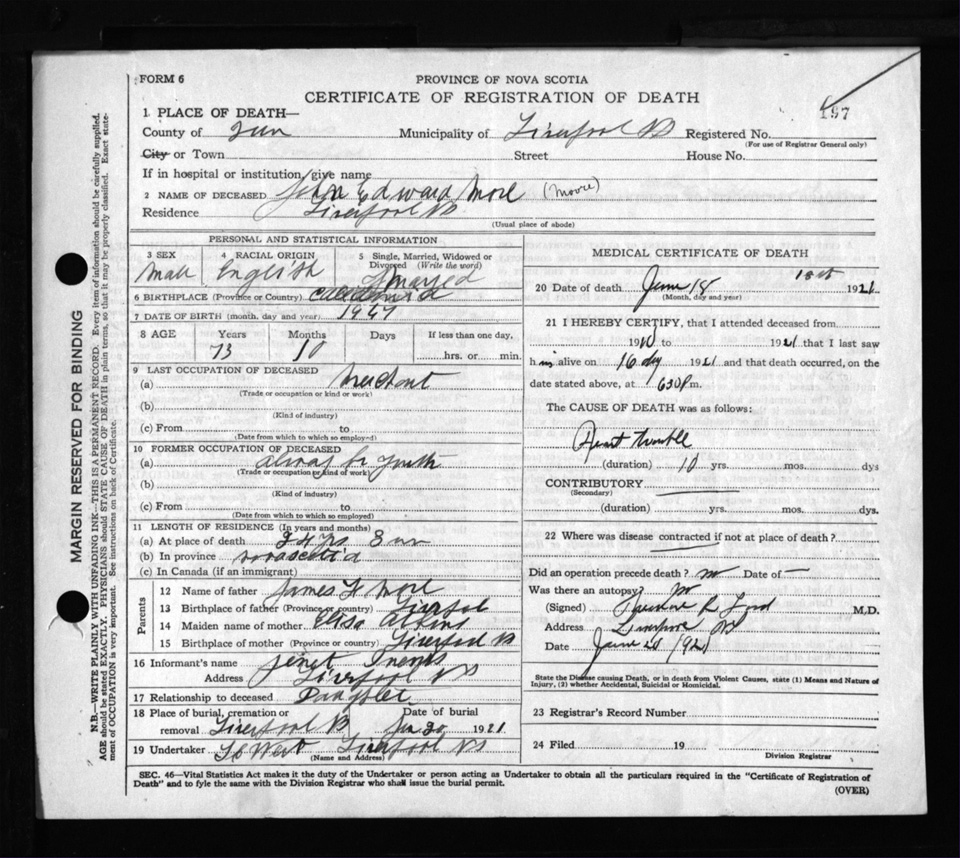 FORM 6
PROVINCE OF NOVA SCOTIA
CERTIFICATE OF REGISTRATION OF DEATH
197
1 PLACE OF DEATH—
County of Municipality of Liverpool NS Registered No.
(For use of Registrar General only)
City or Town Street House No.
If in hospital or institution, give name
2 NAME OF DECEASED John Edward More (Moore)
Residence Liverpool NS
(Usual place of abode)
PERSONAL AND STATISTICAL INFORMATION
3 SEX 4 RACIAL ORIGIN 5 Single, Married, Widowed or Divorced (Write the word)
Male English Married
6 BIRTHPLACE (Province or Country) Caledonia
7 DATE OF BIRTH (month, day and year) 1947
8 AGE Years Months Days If less than one day,
73 10 hrs. or min.
9 LAST OCCUPATION OF DECEASED
(a) Merchant
(Trade or occupation or kind or work)
(b)
(Kind of industry)
(c) From to
(Date from which to which so employed)
10 FORMER OCCUPATION OF DECEASED
(a)
(Trade or occupation or kind of work)
(b)
(Kind of industry)
(c) From to
(Date from which to which so employed)
11 LENGTH OF RESIDENCE (In years and months)
(a) At place of death yrs 8
(b) In province novascotia
(c) In Canada (if an immigrant)
Parents
12 Name of father James More
13 Birthplace of father (Province or country) Liverpol
14 Maiden name of mother Elisa Atkins
15 Birthplace of mother (Province or country) Liverpool NS
16 Informant's name Jenet
Address Liverpool NS
17 Relationship to deceased Daughter
18 Place of burial, cremation or removal Liverpool NS Date of burial Jun 20 1921
19 Undertaker West Liverpool NS
(Name and Address)
MEDICAL CERTIFICATE OF DEATH
20 Date of death June 18 18th 1921
(Month, day and year)
21 I HEREBY CERTIFY, that I attended deceased from
1910 to 1921 that I last saw
him alive on 16 day 1921 and that death occurred, on the
date stated above, at 630 P m.
The CAUSE OF DEATH was as follows:
Heart trouble
(duration) 10 yrs. mos. dys
CONTRIBUTORY
(Secondary)
(duration) yrs. mos. dys.
22 Where was disease contracted if not at place of death?
Did an operation precede death? no Date of —
Was there an autopsy? no
(Signed) Ford M.D.
Address Liverpool NS
Date June 20 1921
State the Disease causing Death, or in death from Violent Causes, state (1) Means and Nature of
Injury, (2) whether Accidental, Suicidal or Homicidal.
23 Registrar's Record Number
24 Filed 19
Division Registrar
SEC. 46—Vital Statistics Act makes it the duty of the Undertaker or person acting as Undertaker to obtain all the particulars required in the "Certificate of Registration of
Death" and to fyle the same with the Division Registrar who shall issue the burial permit.
(OVER)
MARGIN RESERVED FOR BINDING
N.B.—WRITE PLAINLY WITH UNFADING INK—THIS IS A PERMANENT RECORD. Every item of information should be carefully supplied.
AGE should be stated EXACTLY. PHYSICIANS should STATE CAUSE OF DEATH in plain terms, so that it may be properly classified. Exact state-
ment of OCCUPATION is very important. See instructions on back of Certificate.